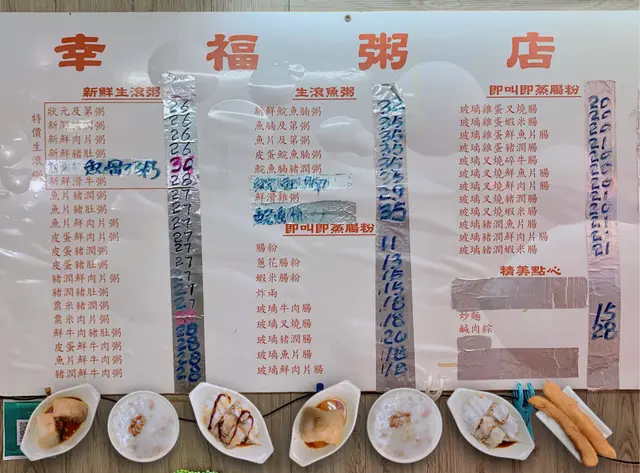 幸福粥店
新鮮生滾粥
特價生滾
狀元及第粥 26
26
新鮮肉片粥 26
新鮮豬肚粥 26
30
新鮮滑牛粥 28
魚片豬潤粥 27
魚片豬肚粥 27
魚片鮮肉粥 27
皮蛋鮮肉粥 27
皮蛋豬潤粥 27
皮蛋豬肚粥 27
豬潤鮮肉粥 27
豬潤豬肚粥 27
粟米豬潤粥 27
粟米肉片粥
鮮牛豬肚粥 28
皮蛋鮮牛粥 28
魚片鮮牛粥 28
豬潤鮮牛粥 28
生滾魚粥
新鮮鯇魚腩粥
魚腩及第粥 35
魚片及第粥 35
皮蛋鯇魚腩粥 35
鯇魚腩豬潤粥 35
鮮滑雞粥 29
35
即叫即蒸腸粉
腸粉 11
蔥花腸粉 13
蝦米腸粉 15
炸兩 15
玻璃牛肉腸 18
玻璃叉燒腸 18
玻璃豬潤腸 20
玻璃魚片腸 18
玻璃鮮肉片腸 18
即叫即蒸腸粉
玻璃雞蛋叉燒腸 20
玻璃雞蛋蝦米腸 20
玻璃雞蛋鮮魚片腸
玻璃雞蛋豬潤腸
玻璃叉燒碎牛腸
玻璃叉燒鮮魚片腸
玻璃叉燒鮮肉片腸
玻璃叉燒豬潤腸
玻璃叉燒蝦米腸
玻璃豬潤鮮魚片腸
玻璃豬潤鮮肉片腸 21
玻璃豬潤蝦米腸 21
精美點心
炒麵 15
鹹肉粽 28